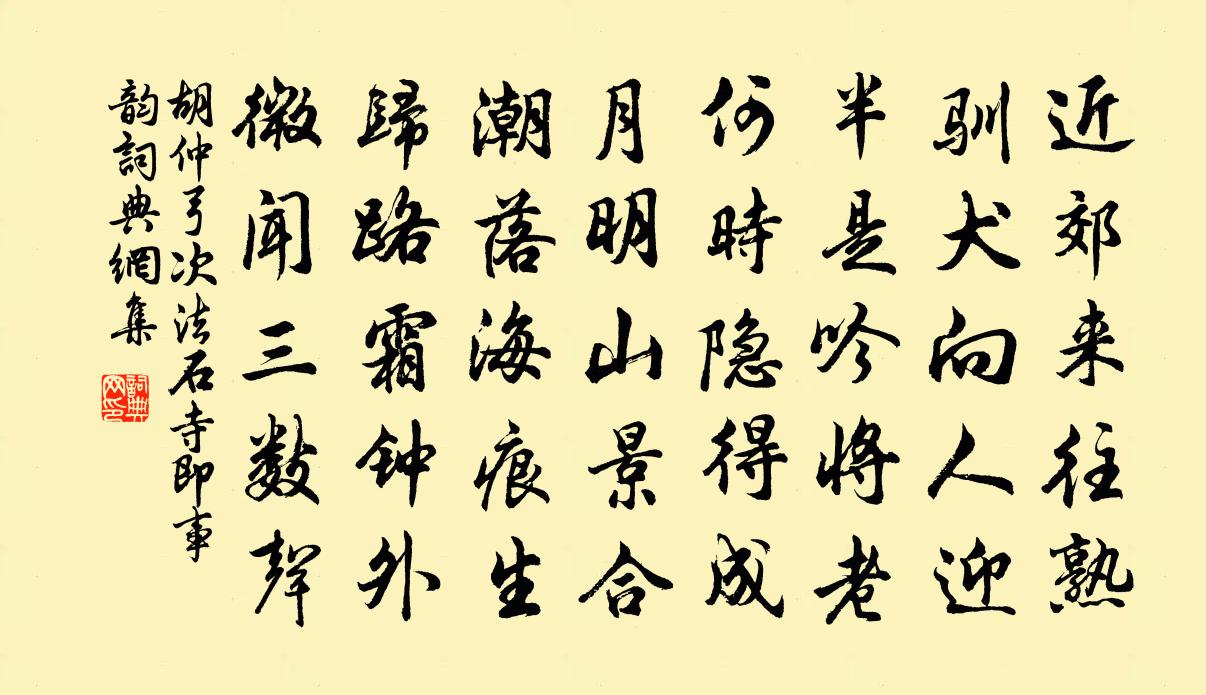 近郊来往熟
驯犬向人迎
半是吟将老
何時隐得成
月明山景合
潮落海痕生
歸路霜钟外
微闻三数聲
胡仲弓次法石寺即事
韵詞典網集
詞典网印